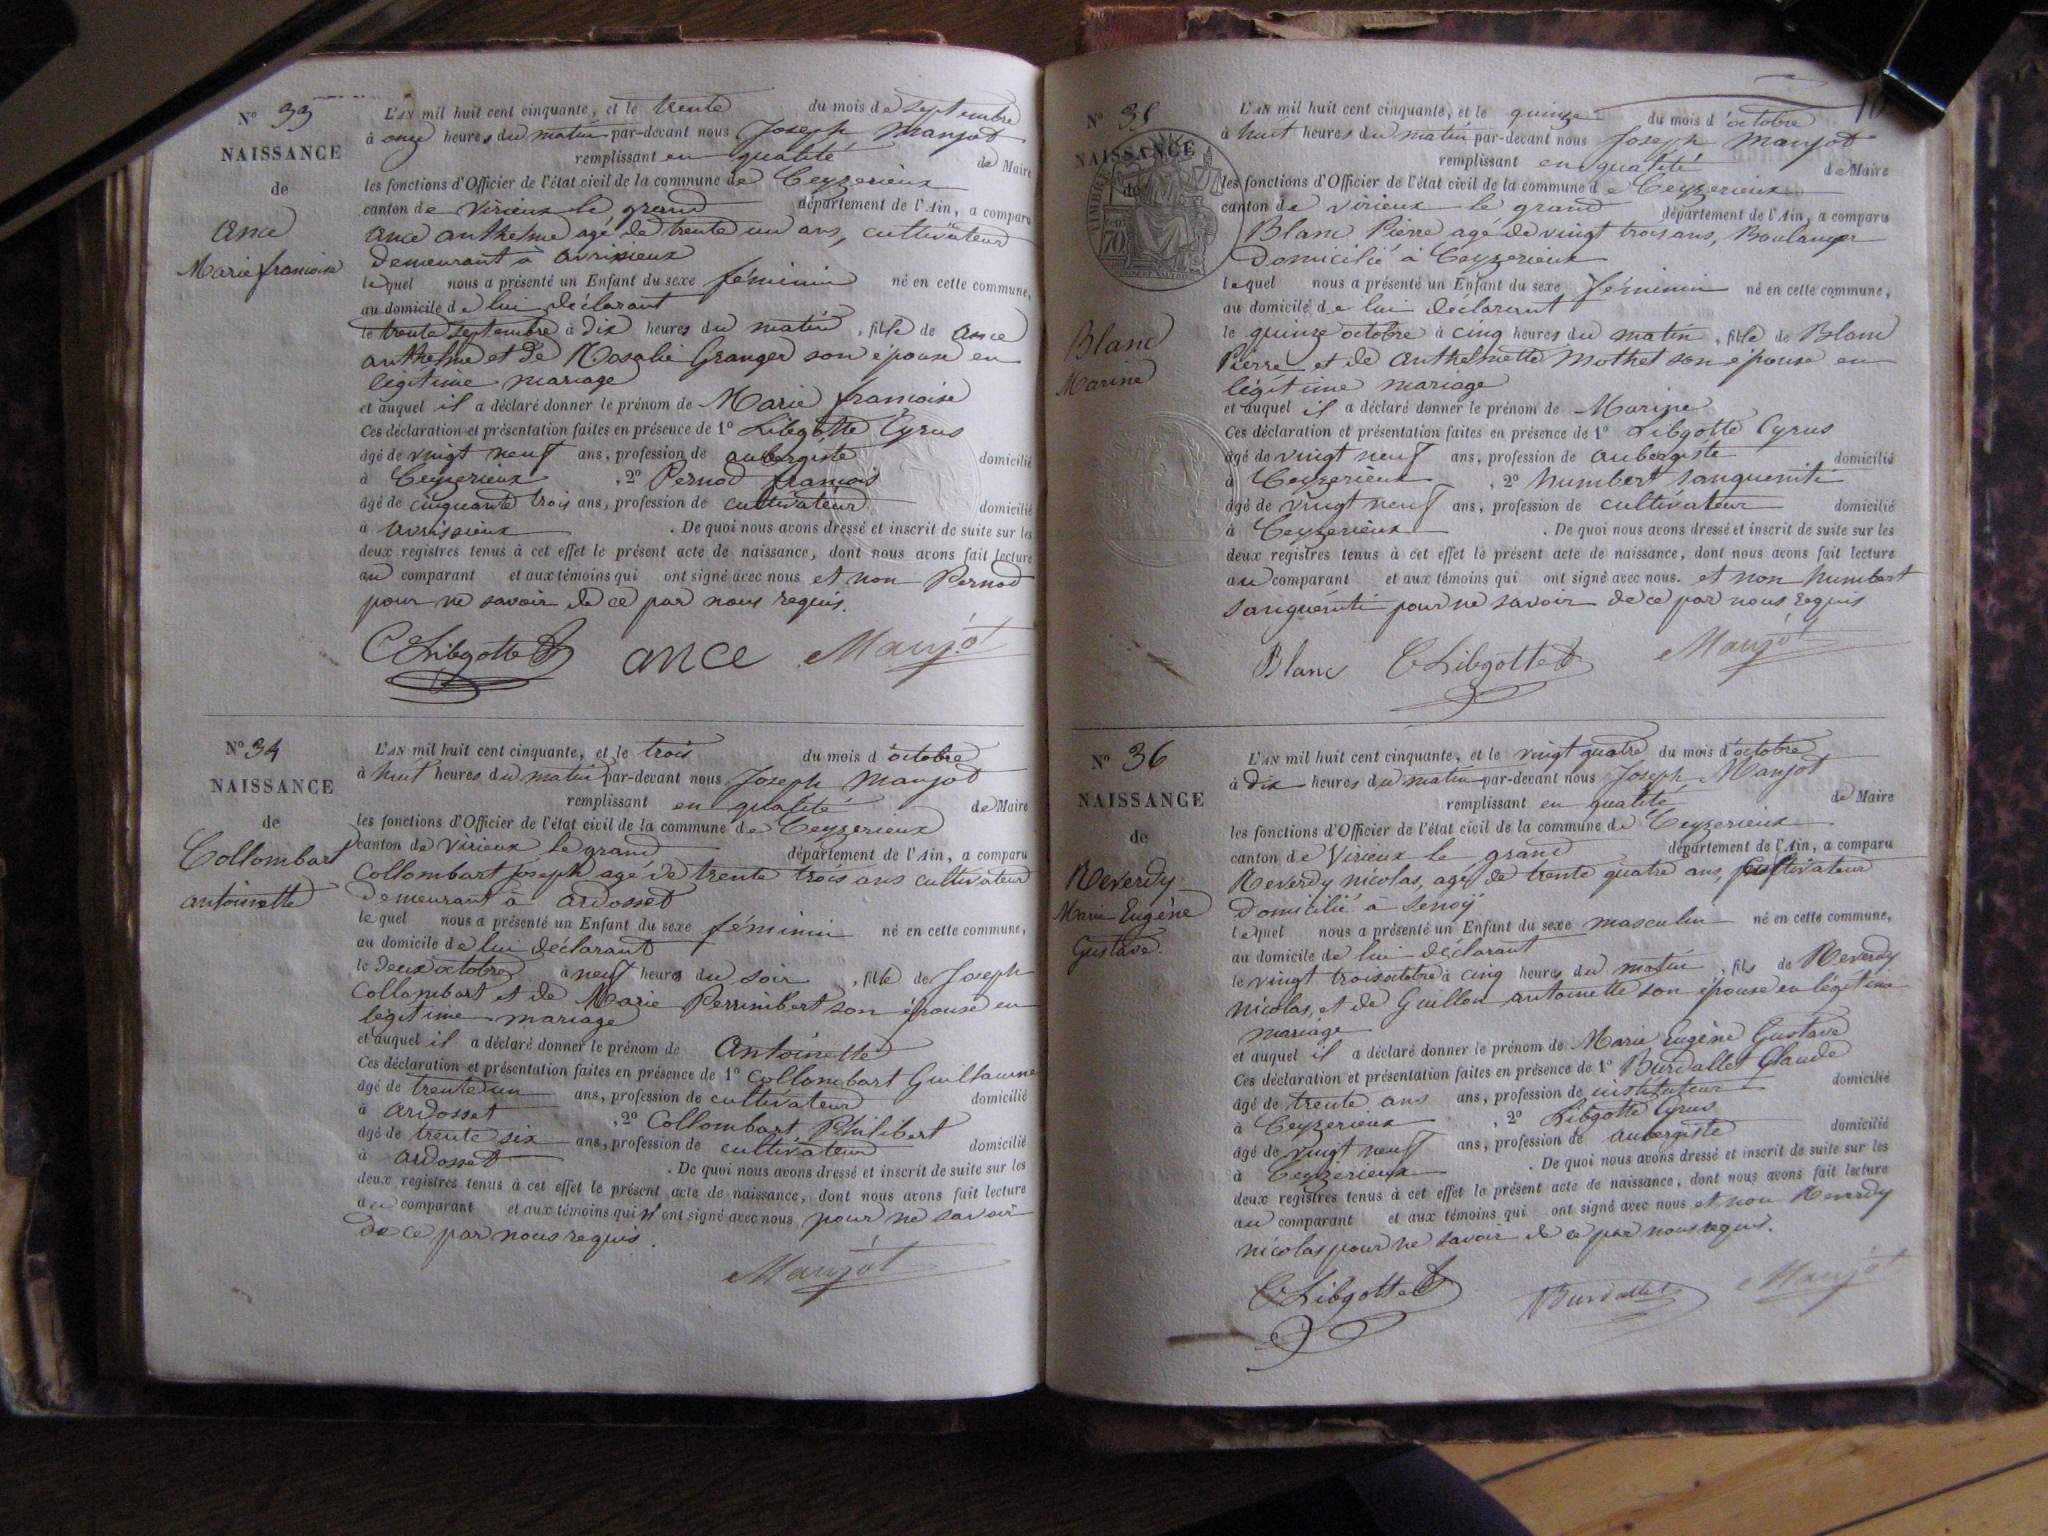 N° 33
NAISSANCE
de
Ance
Marie françoise
L'AN mil huit cent cinquante, et le trente du mois de septembre
à onze heures du matin par-devant nous Joseph Manjot
remplissant en qualité de Maire
les fonctions d'Officier de l'état civil de la commune de Ceyzerieux
canton de Virieux le grand département de l'Ain, a comparu
Ance anthelme agé de trente un ans, cultivateur
demeurant à avrissieux
lequel nous a présenté un Enfant du sexe féminin né en cette commune,
au domicile de lui déclarant
le trente septembre à dix heures du matin, fille de Ance
anthelme et de Rosalie Granger son épouse en
légitime mariage
et auquel il a déclaré donner le prénom de Marie françoise
Ces déclaration et présentation faites en présence de 1° Libgotte Cyrus
âgé de vingt neuf ans, profession de aubergiste domicilié
à Ceyzerieux, 2° Pernod françois
âgé de cinquante trois ans, profession de cultivateur domicilié
à avrissieux. De quoi nous avons dressé et inscrit de suite sur les
deux registres tenus à cet effet le présent acte de naissance, dont nous avons fait lecture
au comparant et aux témoins qui ont signé avec nous et non Pernod
pour ne savoir de ce par nous requis.
C Libgotte ance Manjot
N° 34
NAISSANCE
de
Collombart
antoinette
L'AN mil huit cent cinquante, et le trois du mois d'octobre
à huit heures du matin par-devant nous Joseph Manjot
remplissant en qualité de Maire
les fonctions d'Officier de l'état civil de la commune de Ceyzerieux
canton de Virieux le grand département de l'Ain, a comparu
Collombart Joseph agé de trente trois ans cultivateur
demeurant à ardosset
lequel nous a présenté un Enfant du sexe féminin né en cette commune,
au domicile de lui déclarant
le deux octobre à neuf heures du soir, fille de Joseph
Collombart et de Marie Perrimbert son épouse en
légitime mariage
et auquel il a déclaré donner le prénom de Antoinette
Ces déclaration et présentation faites en présence de 1° Collombart Guillaume
âgé de trente un ans, profession de cultivateur domicilié
à ardosset, 2° Collombart Philibert
âgé de trente six ans, profession de cultivateur domicilié
à ardosset. De quoi nous avons dressé et inscrit de suite sur les
deux registres tenus à cet effet le présent acte de naissance, dont nous avons fait lecture
au comparant et aux témoins qui n'ont signé avec nous pour ne savoir
de ce par nous requis.
Manjot
10
N° 35
NAISSANCE
de
Blanc
Marine
L'AN mil huit cent cinquante, et le quinze du mois d'octobre
à huit heures du matin par-devant nous Joseph Manjot
remplissant en qualité de Maire
les fonctions d'Officier de l'état civil de la commune de Ceyzerieux
canton de Virieux le grand département de l'Ain, a comparu
Blanc Pierre agé de vingt trois ans, Boulanger
domicilié à Ceyzerieux
lequel nous a présenté un Enfant du sexe féminin né en cette commune,
au domicile de lui déclarant
le quinze octobre à cinq heures du matin, fille de Blanc
Pierre et de anthelmette Mothet son épouse en
légitime mariage
et auquel il a déclaré donner le prénom de Marine
Ces déclaration et présentation faites en présence de 1° Libgotte Cyrus
âgé de vingt neuf ans, profession de aubergiste domicilié
à Ceyzerieux, 2° humbert sangueniti
âgé de vingt neuf ans, profession de cultivateur domicilié
à Ceyzerieux. De quoi nous avons dressé et inscrit de suite sur les
deux registres tenus à cet effet le présent acte de naissance, dont nous avons fait lecture
au comparant et aux témoins qui ont signé avec nous. et non humbert
sanguéniti pour ne savoir de ce par nous requis
Blanc C Libgotte Manjot
N° 36
NAISSANCE
de
Reverdy
Marie Eugène
Gustave.
L'AN mil huit cent cinquante, et le vingt quatre du mois d'octobre
à dix heures du matin par-devant nous Joseph Manjot
remplissant en qualité de Maire
les fonctions d'Officier de l'état civil de la commune de Ceyzerieux
canton de Virieux le grand département de l'Ain, a comparu
Reverdy nicolas, agé de trente quatre ans, cultivateur
domicilié à senoÿ
lequel nous a présenté un Enfant du sexe masculin né en cette commune,
au domicile de lui déclarant
le vingt trois octobre à cinq heures du matin, fils de Reverdy
nicolas, et de Guillon antoinette son épouse en légitime
mariage
et auquel il a déclaré donner le prénom de Marie Eugène Gustave
Ces déclaration et présentation faites en présence de 1° Burdallet Claude
âgé de trente ans ans, profession de instituteur domicilié
à Ceyzerieux, 2° Libgotte Cyrus
âgé de vingt neuf ans, profession de aubergiste domicilié
à Ceyzerieux. De quoi nous avons dressé et inscrit de suite sur les
deux registres tenus à cet effet le présent acte de naissance, dont nous avons fait lecture
au comparant et aux témoins qui ont signé avec nous et non Reverdy
nicolas pour ne savoir de ce par nous requis.
C Libgotte Burdallet Manjot